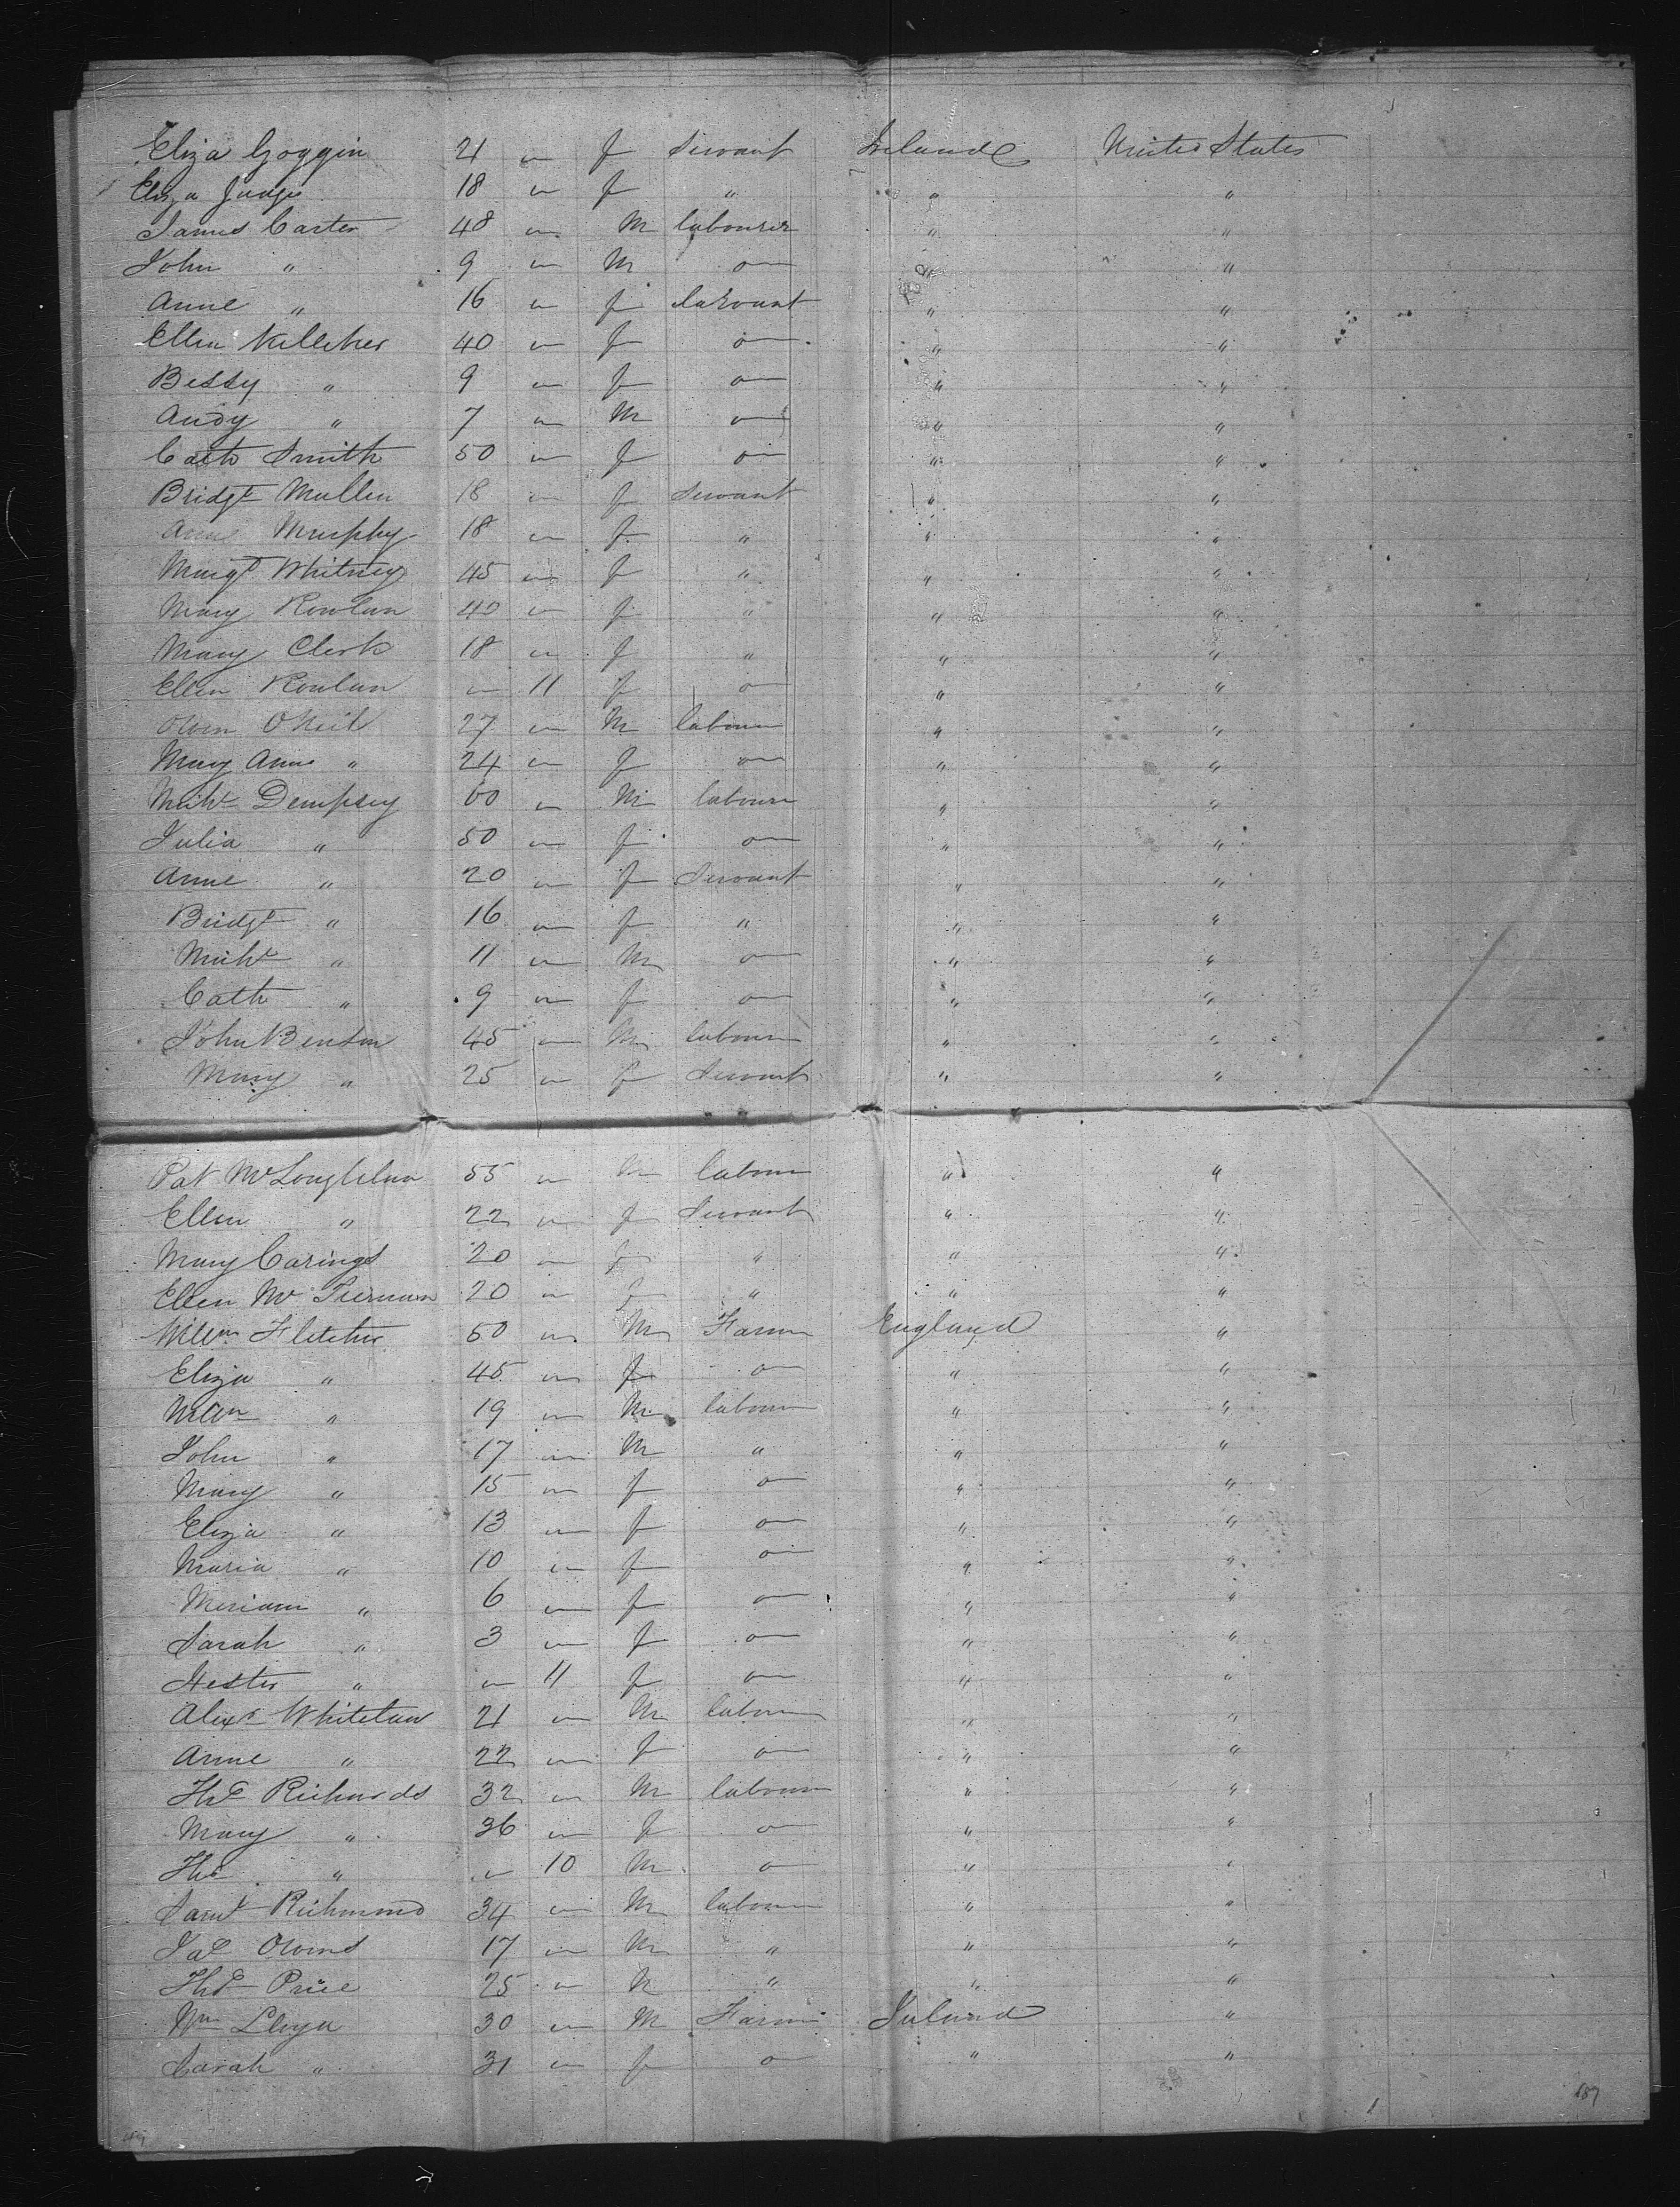 Eliza Goggin 21 " f Servant Ireland United States
Eliza Judge 18 " f " " "
James Carter 48 " M labourer " "
John " 9 " M " " "
Anne " 16 " f Servant " "
Ellen Kelleher 40 " f " " "
Bessy " 9 " f " " "
Andy " 7 " M " " "
Cath Smith 50 " f " " "
Bridgt Mullen 18 " f Servant " "
Ann Murphy 18 " f " " "
Margt Whitney 45 " f " " "
Mary Rowlan 40 " f " " "
Mary Clerk 18 " f " " "
Ellen Rowlan " 11 f " " "
Owen ONeil 27 " M labour " "
Mary Anne " 24 " f " " "
Michl Dempsey 60 " M labour " "
Julia " 50 " f " " "
Anne " 20 " f Servant " "
Bridgt " 16 " f " " "
Michl " 11 " M " " "
Cath " 9 " f " " "
John Benson 45 " M labour " "
Mary " 25 " f Servant " "
Pat McLoughlin 55 " M labour " "
Ellen " 22 " f Servant " "
Mary Carings 20 " f " " "
Ellen McTiernan 20 " f " " "
Willm Fletcher 50 " M Farmer England "
Eliza " 45 " f " " "
Willm " 19 " M labour " "
John " 17 " M " " "
Mary " 15 " f " " "
Eliza " 13 " f " " "
Maria " 10 " f " " "
Meriam " 6 " f " " "
Sarah " 3 " f " " "
Hester " " 11 f " " "
Alexr Whitelaw 21 " M labour " "
Anne " 22 " f " " "
Ths Richards 32 " M labour " "
Mary " 36 " f " " "
Ths " " 10 M " " "
Saml Richmond 34 " M labour " "
Jas Owens 17 " M " " "
Ths Price 25 " M " " "
Wm Lloyd 30 " M Farmer Ireland "
Sarah " 31 " f " " "
187